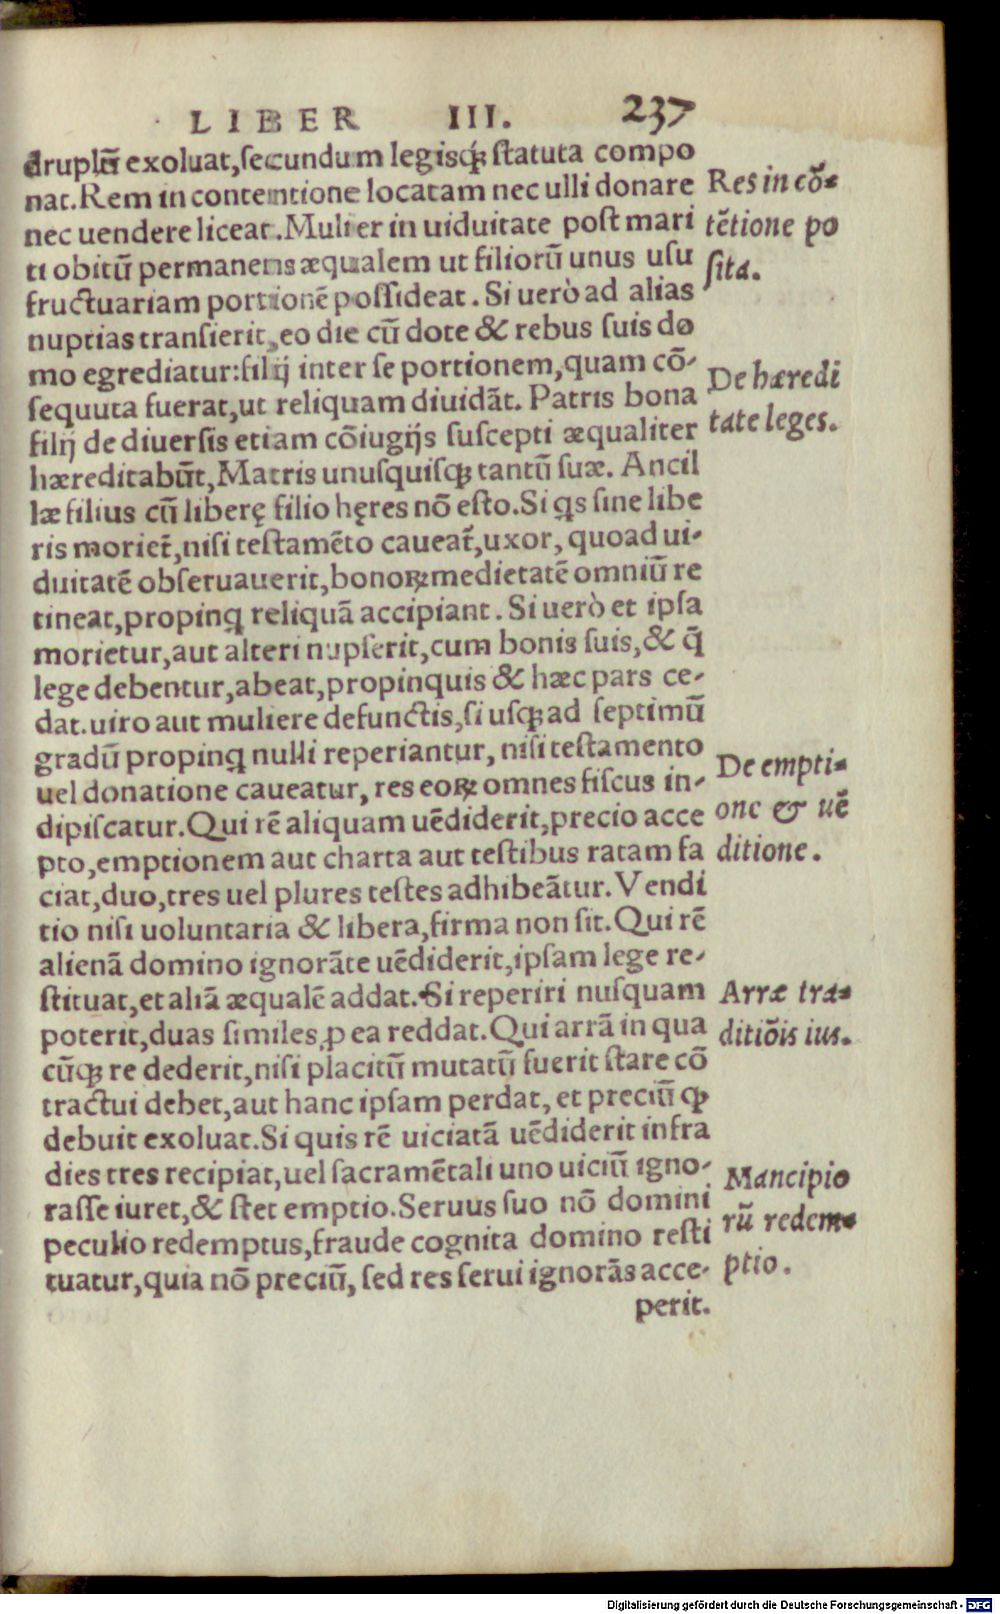 LIBER III. 237
druplũ exoluat,secundum legisq́ꝫ statuta compo
nat.Rem in contentione locatam nec ulli donare
nec uendere liceat.Mulier in uiduitate post mari
ti obitũ permanens æqualem ut filiorũ unus usu
fructuariam portionẽ possideat. Si uerò ad alias
nuptias transierit,eo die cũ dote & rebus suis do
mo egrediatur:filij inter se portionem,quam cõ-
sequuta fuerat,ut reliquam diuidãt. Patris bona
filij de diuersis etiam cõiugijs suscepti æqualiter
hæreditabũt,Matris unusquisqꝫ tantũ suæ. Ancil
læ filius cũ liberę filio hęres nõ esto.Si qs sine libe
ris moriet̃,nisi testamẽto caueat̃,uxor, quoad ui-
duitatẽ obseruauerit,bonoꝝ medietatẽ omniũ re
tineat,propinꝗ reliquã accipiant. Si uerò et ipsa
morietur,aut alteri nupserit,cum bonis suis,& q̃
lege debentur,abeat,propinquis & hæc pars ce-
dat.uiro aut muliere defunctis,si usqꝫ ad septimũ
gradũ propinꝗ nulli reperiantur, nisi testamento
uel donatione caueatur, res eoꝝ omnes fiscus in-
dipiscatur.Qui rẽ aliquam uẽdiderit,precio acce
pto,emptionem aut charta aut testibus ratam fa
ciat,duo,tres uel plures testes adhibeãtur. Vendi
tio nisi uoluntaria & libera,firma non sit.Qui rẽ
alienã domino ignorãte uẽdiderit,ipsam lege re-
stituat,et aliã æqualẽ addat.Si reperiri nusquam
poterit,duas similes ꝓ ea reddat.Qui arrã in qua
cũqꝫ re dederit,nisi placitũ mutatũ fuerit stare cõ
tractui debet,aut hanc ipsam perdat, et preciũ ꝙ
debuit exoluat.Si quis rẽ uiciatã uẽdiderit infra
dies tres recipiat,uel sacramẽtali uno uiciũ igno-
rasse iuret,& stet emptio.Seruus suo nõ domini
peculio redemptus,fraude cognita domino resti
tuatur,quia nõ preciũ, sed res serui ignorãs acce-
perit.
Res in cõ-
tẽtione po
sita.
De hæredi
tate leges.
De empti-
one & uẽ
ditione.
Arræ tra-
ditiõis ius.
Mancipio
rũ redem-
ptio.
Digitalisierung gefördert durch die Deutsche Forschungsgemeinschaft - DFG